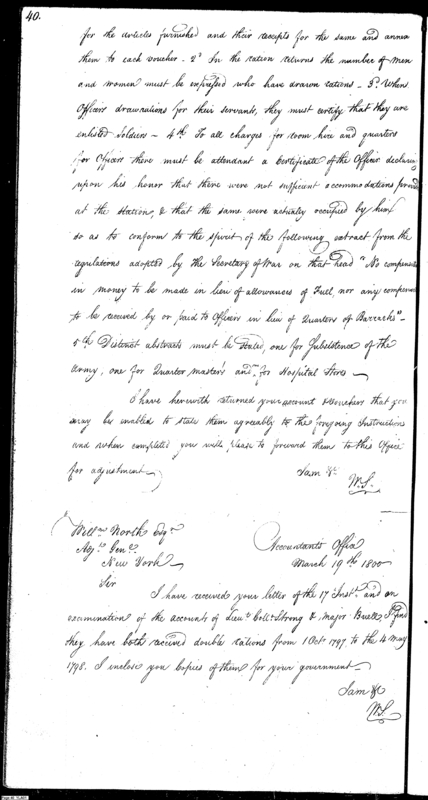 40.
for the articles furnished and their receipts for the same and annex
them to each voucher - 2d In the ration returns the number of men
and women must be expressed who have drawn rations - 3d. When
Officers draw rations for their servants, they must certify that they are
enlisted soldiers - 4th To all charges for room hire and quarters
for Officers there must be attendant a Certificate of the Officer declaring
upon his honor that there were not sufficient accommodations provided
at the Station, & that the same were actually occupied by him
so as to conform to the spirit of the following extract from the
regulations adopted by the Secretary of War on that head "No compensation
in money to be made in lieu of allowances of Fuel, nor any compensation
to be received by or paid to Officers in lieu of Quarters of Barracks" -
5th Distinct abstracts must be stated, one for Subsistence of the
Army, one for Quarter master's and for Hospital Stores
I have herewith returned your account & vouchers that you
may be enabled to state them agreeably to the foregoing Instructions
and when completed you will please to forward them to this Office
for adjustment
I am &c
W.S.
Willm North Esqr
Adjt Genl
New York
Accountants Office
March 19th 1800
Sir
I have received your letter of the 17 Inst. and on
examination of the accounts of Lieut Coll. Strong & Major Buell, I find
they have both received double rations from 1 Oct 1797 to the 4 May
1798. I inclose you Copies of them for your government
I am &c
W.S.